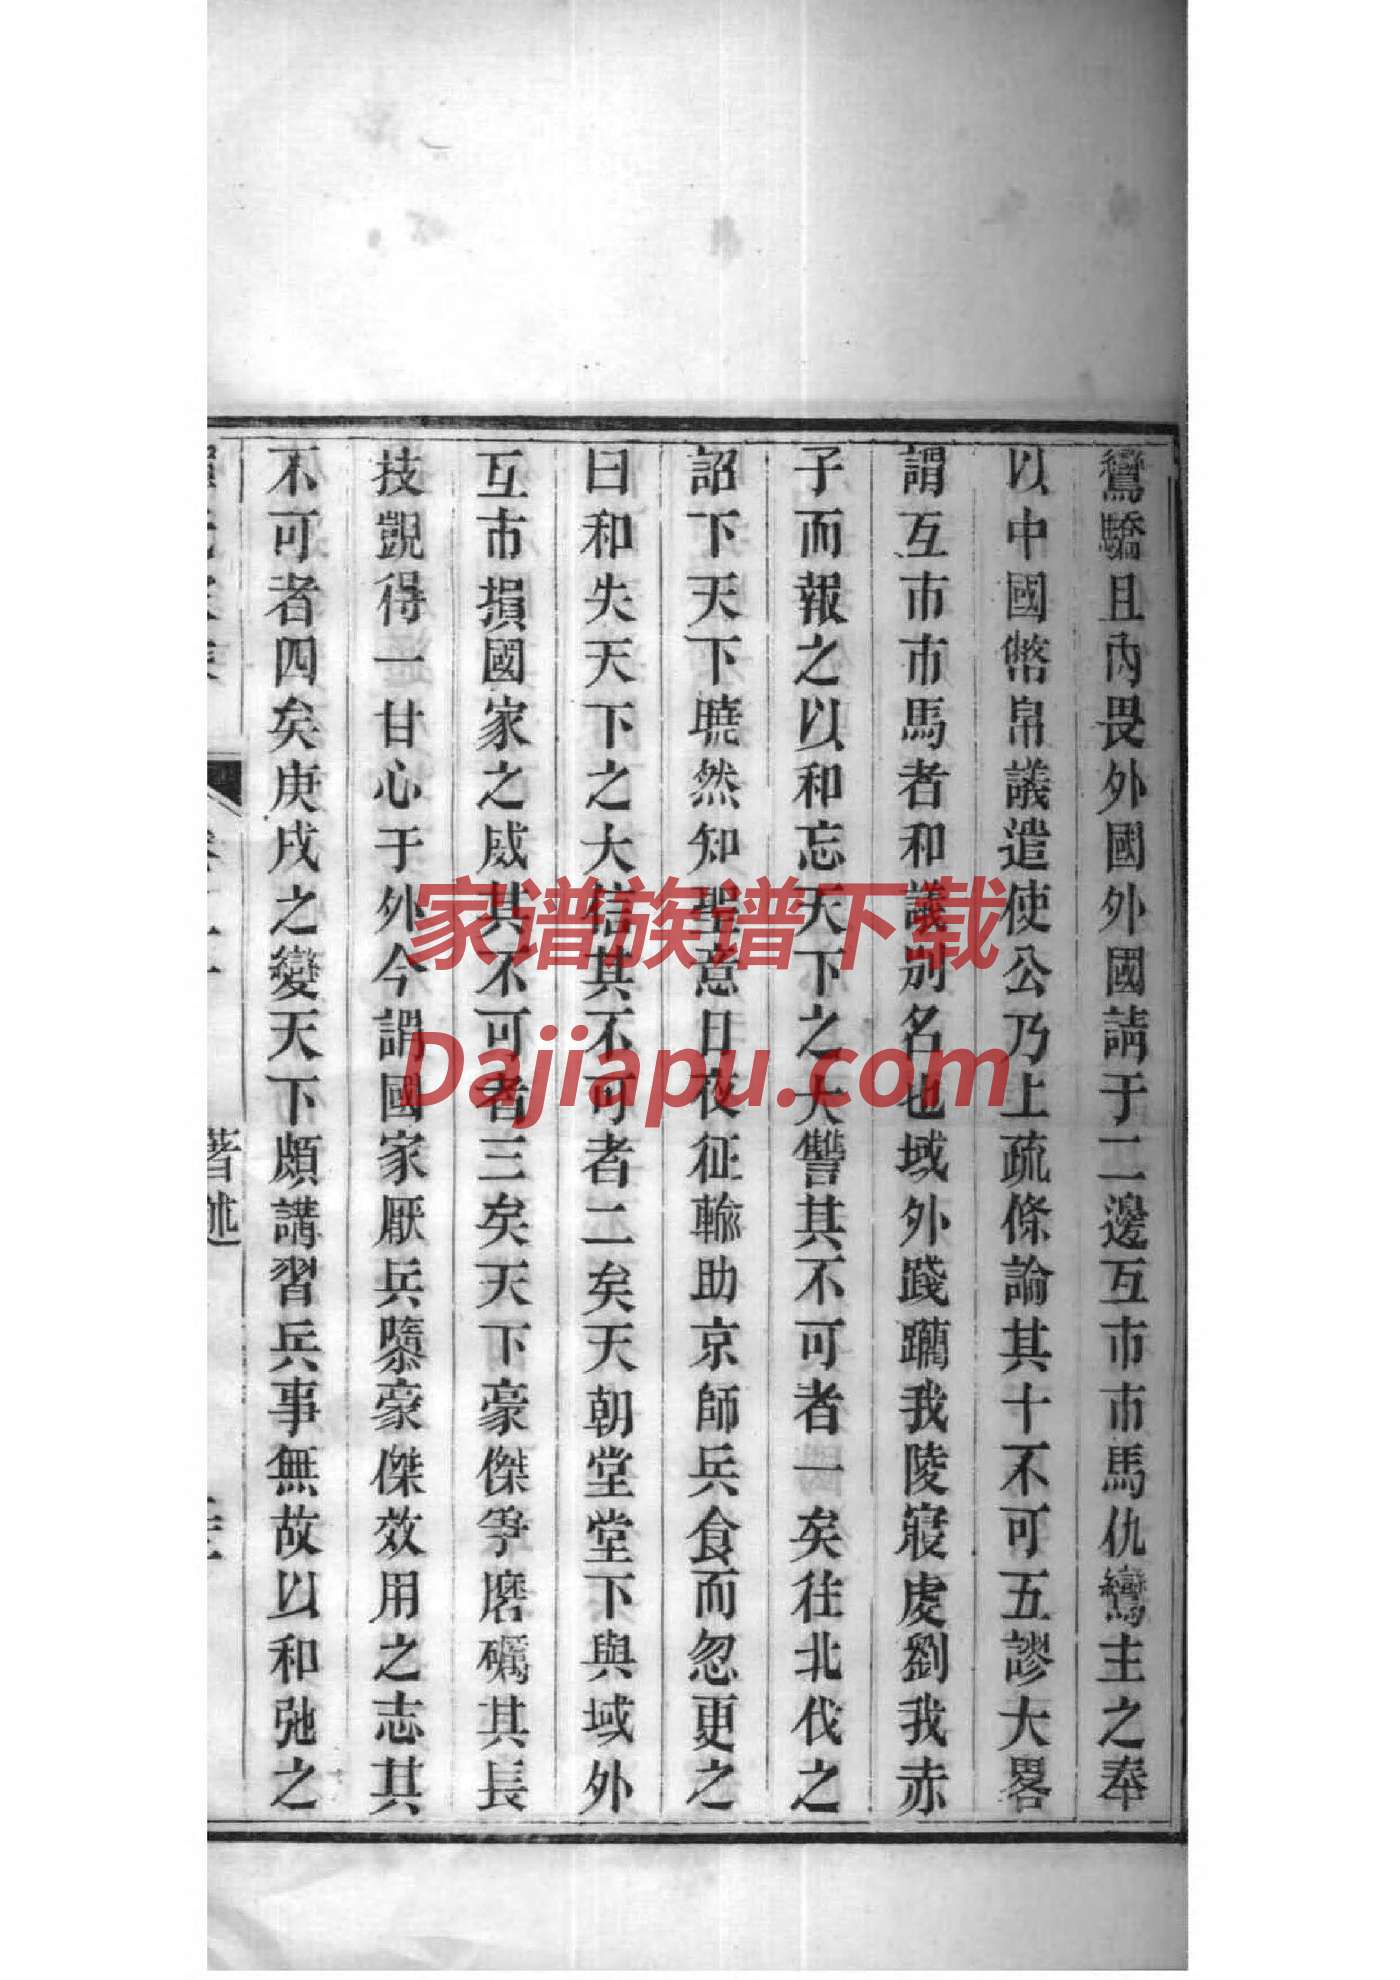 鸞驕且內畏外國外國請于二邊互市市馬仇鸞主之奉
以中國幣帛議遣使公乃上疏條論其十不可五謬大畧
謂互市市馬者和議別名也域外踐躪我陵寢虔劉我赤
子而報之以和忘天下之大讐其不可者一矣往北伐之
詔下天下曉然知聖意日夜征輸助京師兵食而忽更之
曰和失天下之大信其不可者二矣天朝堂堂下與域外
互市損國家之威其不可者三矣天下豪傑爭磨礪其長
技覬得一甘心于外今謂國家厭兵隳豪傑效用之志其
不可者四矣庚戌之變天下頗講習兵事無故以和弛之
著述
家谱族谱下载
Dajiapu.com